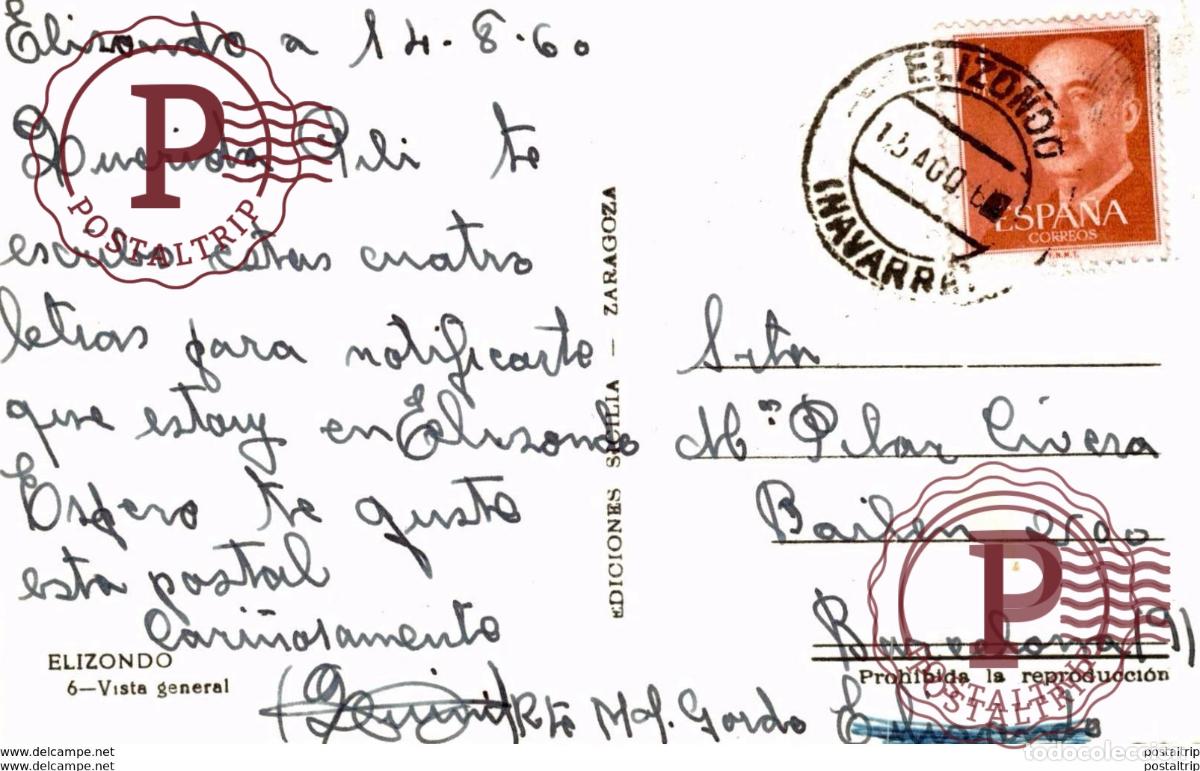 Elizondo a 14-8-60
Querida Pili te
escribo estas cuatro
letras para notificarte
que estoy en Elizondo
Espero te guste
esta postal
Cariñosamente
ELIZONDO
6—Vista general
EDICIONES SICILIA — ZARAGOZA
ELIZONDO
AGO
(NAVARRA)
ESPAÑA
CORREOS
F.N.M.T.
Srta
Mª Pilar Civera
Bailen
Barcelona (9)
Prohibida la reproducción
Rte Gordo Elizondo
P
POSTALTRIP
P
POSTALTRIP
todocoleccion
www.todocoleccion.net
postaltrip
postaltrip
www.todocoleccion.net
postaltrip